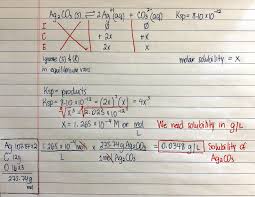 Ag₂CO₃ (s) ⇌ 2Ag⁺(aq) + CO₃²⁻(aq) Ksp = 8.10×10⁻¹²
I Ø Ø
C +2x +x
E 2x x
ignore (s) & (l) in equilibrium rxns
molar solubility = x
Ksp = products
Ksp = 8.10×10⁻¹² = (2x)²(x) = 4x³
∛x³ = ∛2.025×10⁻¹²
x = 1.265×10⁻⁴ M or mol/L We need solubility in g/L
1.265×10⁻⁴ mols / L × 275.74g Ag₂CO₃ / 1 mol Ag₂CO₃ = 0.0348 g/L Solubility of Ag₂CO₃
Ag 107.87×2
C 12g
O 16×3
275.74g/mol